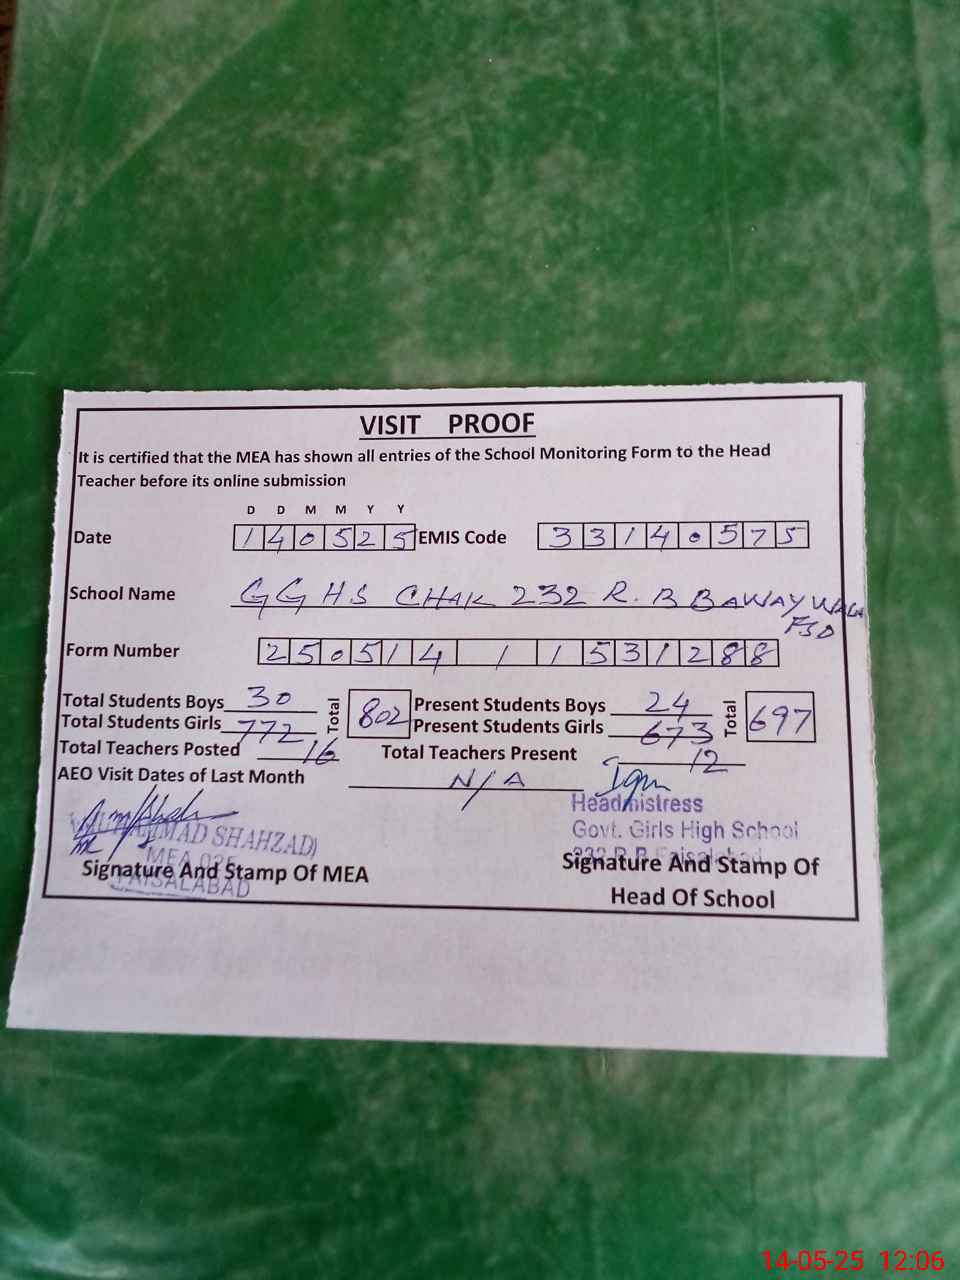 VISIT PROOF
It is certified that the MEA has shown all entries of the School Monitoring Form to the Head
Teacher before its online submission
D D M M Y Y
Date 1 4 0 5 2 5 EMIS Code 3 3 1 4 0 5 7 5
School Name GGHS CHAK 232 R.B BAWAY WALA
FSD
Form Number 2 5 0 5 1 4 1 1 5 3 1 2 8 8
Total Students Boys 30 Total 802 Present Students Boys 24 Total 697
Total Students Girls 772 Present Students Girls 673
Total Teachers Posted 16 Total Teachers Present 12
AEO Visit Dates of Last Month N/A
Headmistress
Govt. Girls High School
232 R.B Faisalabad
AHMAD SHAHZAD)
MEA
FAISALABAD
Signature And Stamp Of MEA
Signature And Stamp Of
Head Of School
14-05-25 12:06